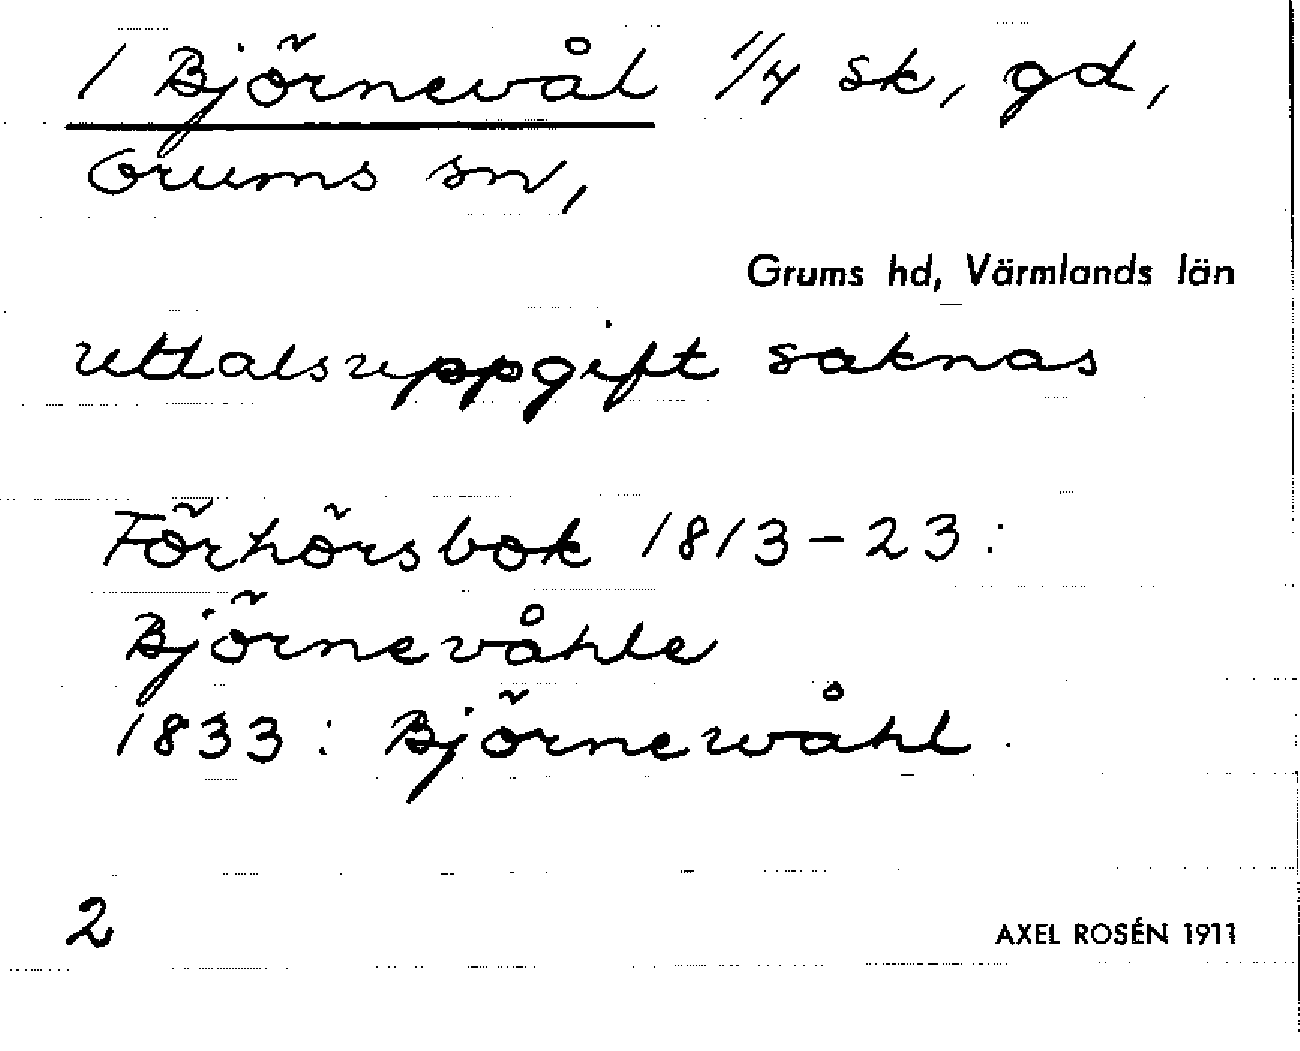 1 Björnevål 1/4 sk, gd,
Grums sn,
Grums hd, Värmlands län
uttalsuppgift saknas
Förhörsbok 1813-23:
Björnevåhle
1833: Björnewåhl.
2
AXEL ROSÉN 1911